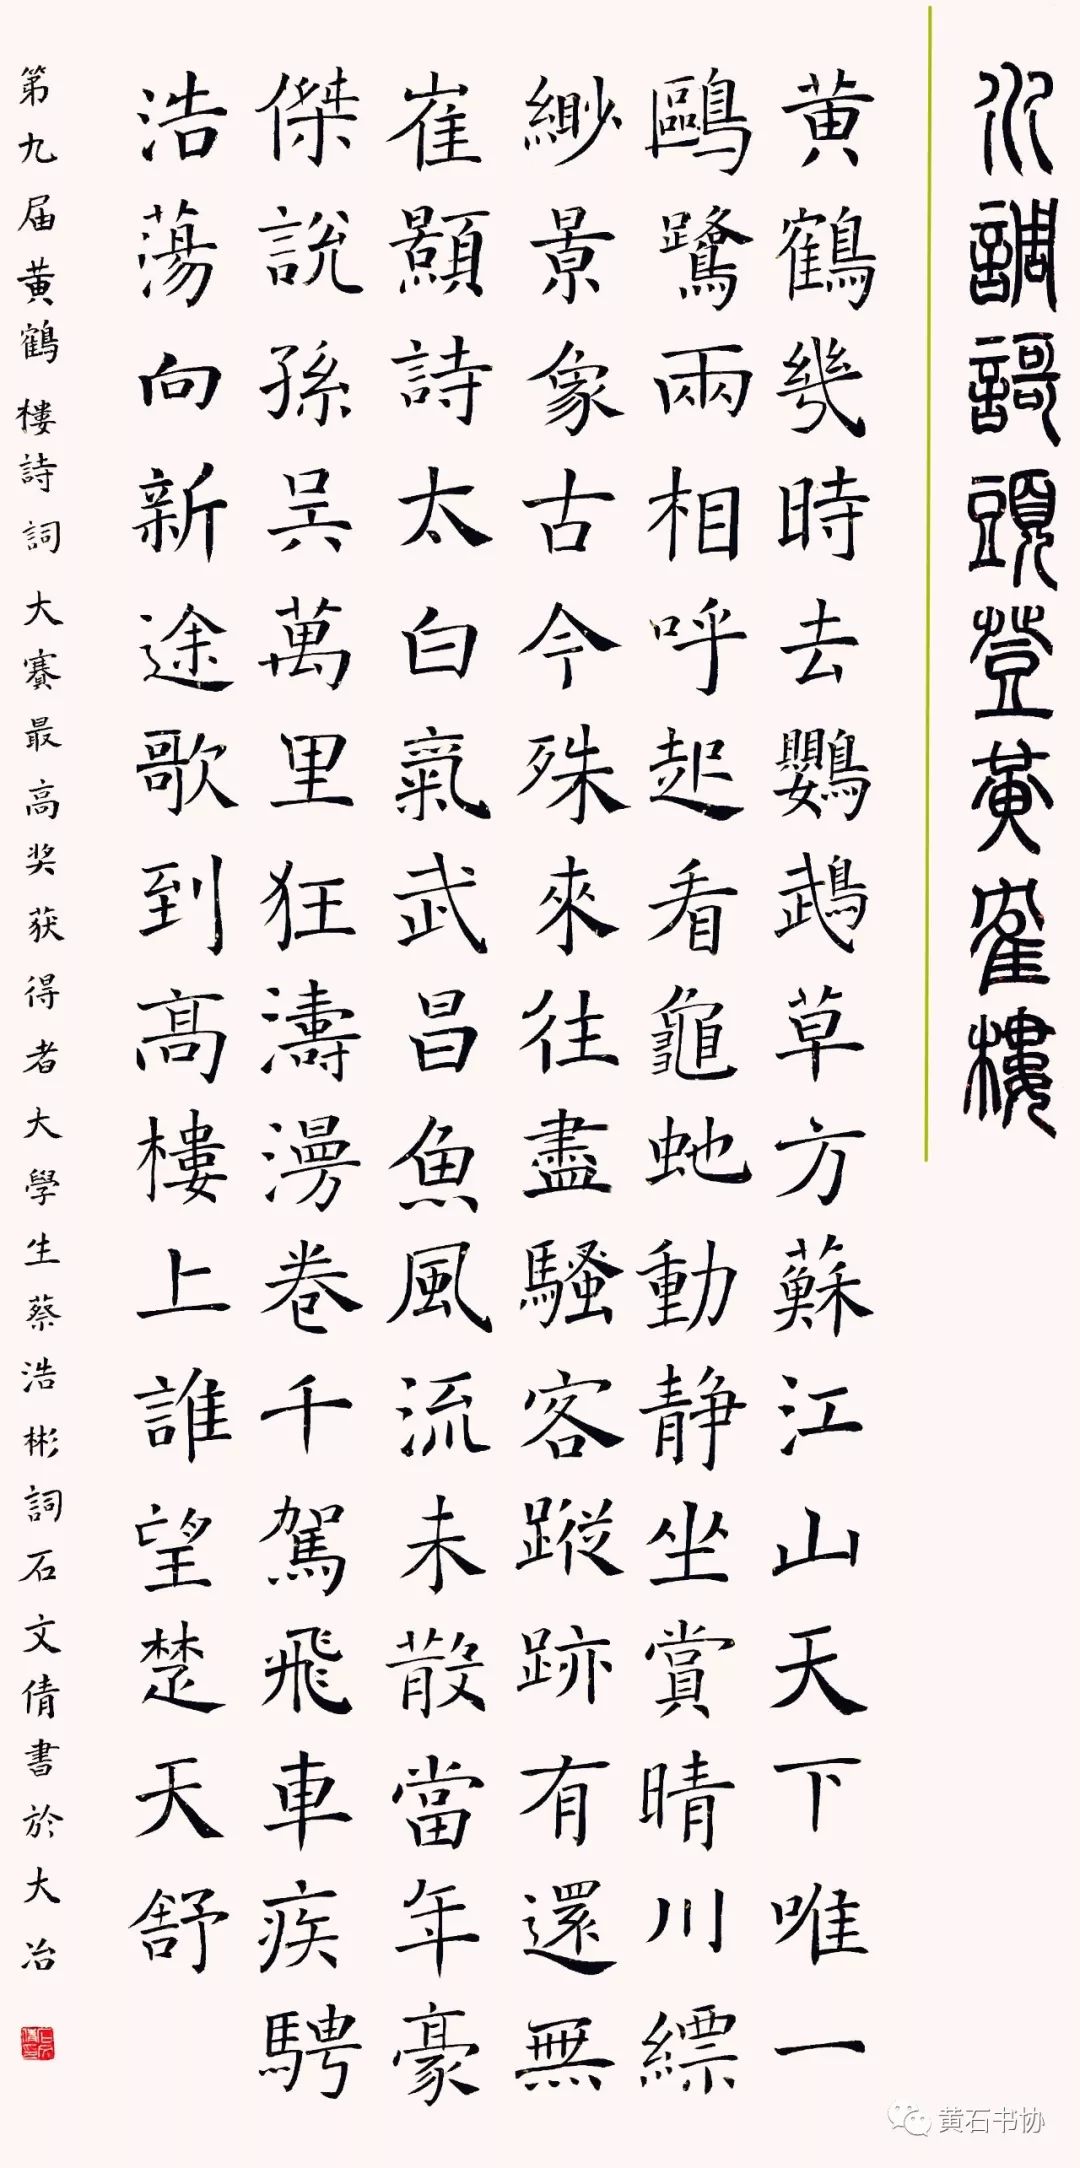 水調謌頭登黄雀樓
黄鶴幾時去鸚鵡草方蘇江山天下唯一
鷗鷺兩相呼起看龜虵動静坐賞晴川縹
緲景象古今殊來往盡騷客蹤跡有還無
崔顥詩太白氣武昌魚風流未散當年豪
傑說孫吴萬里狂濤漫卷千駕飛車疾騁
浩蕩向新途歌到髙樓上誰望楚天舒
第九届黄鶴樓詩詞大賽最高奖获得者大學生蔡浩彬詞石文倩書於大冶
黄石书协